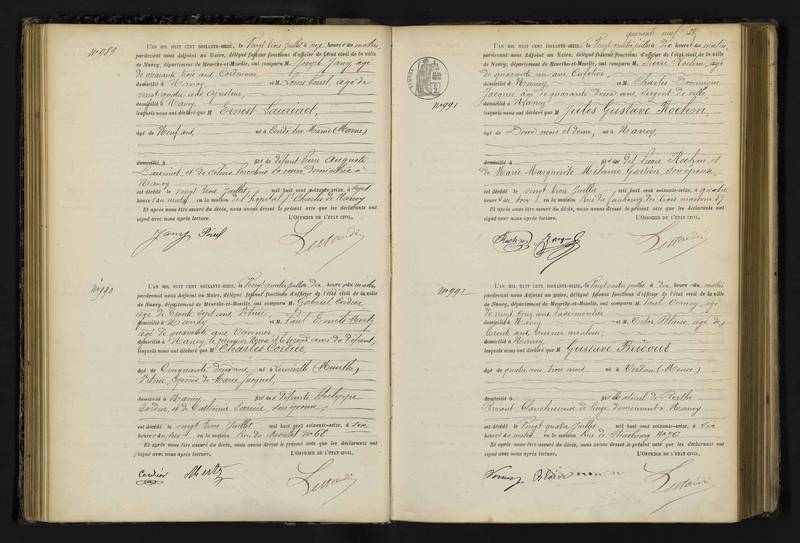 N° 989
L'AN MIL HUIT CENT SOIXANTE-SEIZE, le Vingt trois juillet à onze heures du matin,
pardevant nous Adjoint au Maire, délégué faisant fonctions d'officier de l'état civil de la ville
de Nancy, département de Meurthe-et-Moselle, ont comparu M. Joseph Jany âgé
de quarante trois ans Cordonnier,
domicilié à Nancy et M. Louis âgé de
vingt quatre ans
domicilié à Nancy
lesquels nous ont déclaré que M Ernest Laurinet,
âgé de Neuf ans, né à (Marne)
domicilié à fils de défunt Pierre Auguste
Laurinet, et de Céline sa veuve domiciliée à
Nancy
est décédé le vingt trois juillet mil huit cent soixante-seize, à sept
heures du matin en la maison de l'hôpital St Charles de Nancy
Et après nous être assuré du décès, nous avons dressé le présent acte que les déclarants ont
signé avec nous après lecture.
L'OFFICIER DE L'ÉTAT CIVIL,
Jany
N° 990
L'AN MIL HUIT CENT SOIXANTE-SEIZE, le Vingt quatre juillet à dix heures du matin
pardevant nous Adjoint au Maire, délégué faisant fonctions d'officier de l'état civil de la ville
de Nancy, département de Meurthe-et-Moselle, ont comparu M. Gabriel Cordier
âgé de trente sept ans
domicilié à Nancy et M. Paul Emile Mertz
âgé de quarante ans
domicilié à Nancy, le premier et le second du défunt,
lesquels nous ont déclaré que M Charles Cordier
âgé de Cinquante deux ans, né à Lunéville (Meurthe)
Vitrier, Époux de Marie Jacquot,
domicilié à Nancy fils de défunts
Cordier, et de Catherine son épouse
est décédé le vingt trois juillet mil huit cent soixante-seize, à
heures du en la maison Rue du N° 68
Et après nous être assuré du décès, nous avons dressé le présent acte que les déclarants ont
signé avec nous après lecture.
L'OFFICIER DE L'ÉTAT CIVIL,
Cordier Mertz
quarante neuf
N° 991
L'AN MIL HUIT CENT SOIXANTE-SEIZE, le Vingt quatre juillet à dix heures du matin
pardevant nous Adjoint au Maire, délégué faisant fonctions d'officier de l'état civil de la ville
de Nancy, département de Meurthe-et-Moselle, ont comparu M. Pierre Roehm, âgé
de quarante un ans, Cafetier,
domicilié à Nancy, et M. Charles Dominique
Jacques âgé de quarante deux ans, Sergent de ville
domicilié à Nancy
lesquels nous ont déclaré que M Jules Gustave Roehm,
âgé de Deux mois et demi, né à Nancy,
domicilié à fils de Pierre Roehm, et
de Marie Marguerite Mélanie son épouse
est décédé le vingt trois juillet mil huit cent soixante-seize, à quatre
heures du soir en la maison Rue du faubourg des trois maisons 37
Et après nous être assuré du décès, nous avons dressé le présent acte que les déclarants ont
signé avec nous après lecture.
L'OFFICIER DE L'ÉTAT CIVIL,
Roehm
N° 992
L'AN MIL HUIT CENT SOIXANTE-SEIZE, le Vingt quatre juillet à dix heures du matin
pardevant nous Adjoint au Maire, délégué faisant fonctions d'officier de l'état civil de la ville
de Nancy, département de Meurthe-et-Moselle, ont comparu M. Paul âgé
de vingt cinq ans
domicilié à Nancy et M. Victor Blaise, âgé de
trente ans,
domicilié à Nancy
lesquels nous ont déclaré que M Gustave Pricout
âgé de quatre ans, trois mois né à Verdun (Meuse)
domicilié à fils de
Pricout, Blanchisseuse de linge demeurant à Nancy
est décédé le Vingt quatre juillet mil huit cent soixante-seize, à
heures du matin en la maison Rue de Strasbourg N° 76
Et après nous être assuré du décès, nous avons dressé le présent acte que les déclarants ont
signé avec nous après lecture.
L'OFFICIER DE L'ÉTAT CIVIL,
Blaise